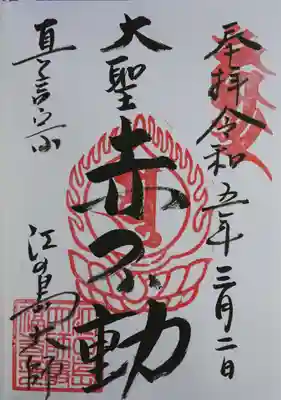 奉拝令和五年三月二日
大聖赤不動
真言宗
江の島大師